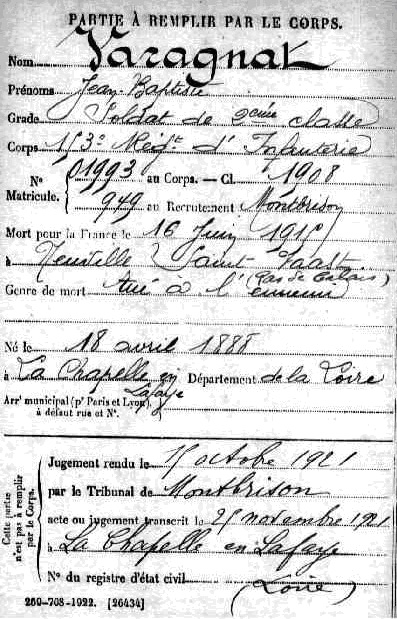 PARTIE À REMPLIR PAR LE CORPS.
Nom Varagnat
Prénoms Jean-Baptiste
Grade Soldat de 2ème classe
Corps 153e Regt d'Infanterie
No 01993 au Corps. — Cl. 1908
Matricule. 949 au Recrutement Montbrison
Mort pour la France le 16 Juin 1915
à Neuville Saint Vaast (Pas de Calais)
Genre de mort tué à l'ennemi
Né le 18 avril 1888
à La Chapelle en Lafaye Département de la Loire
Arrt municipal (pr Paris et Lyon),
à défaut rue et No.
Cette partie n'est pas à remplir par le Corps.
Jugement rendu le 15 octobre 1921
par le Tribunal de Montbrison
acte ou jugement transcrit le 25 novembre 1921
à La Chapelle en Lafaye
No du registre d'état civil (Loire)
260-708-1922. [26434]